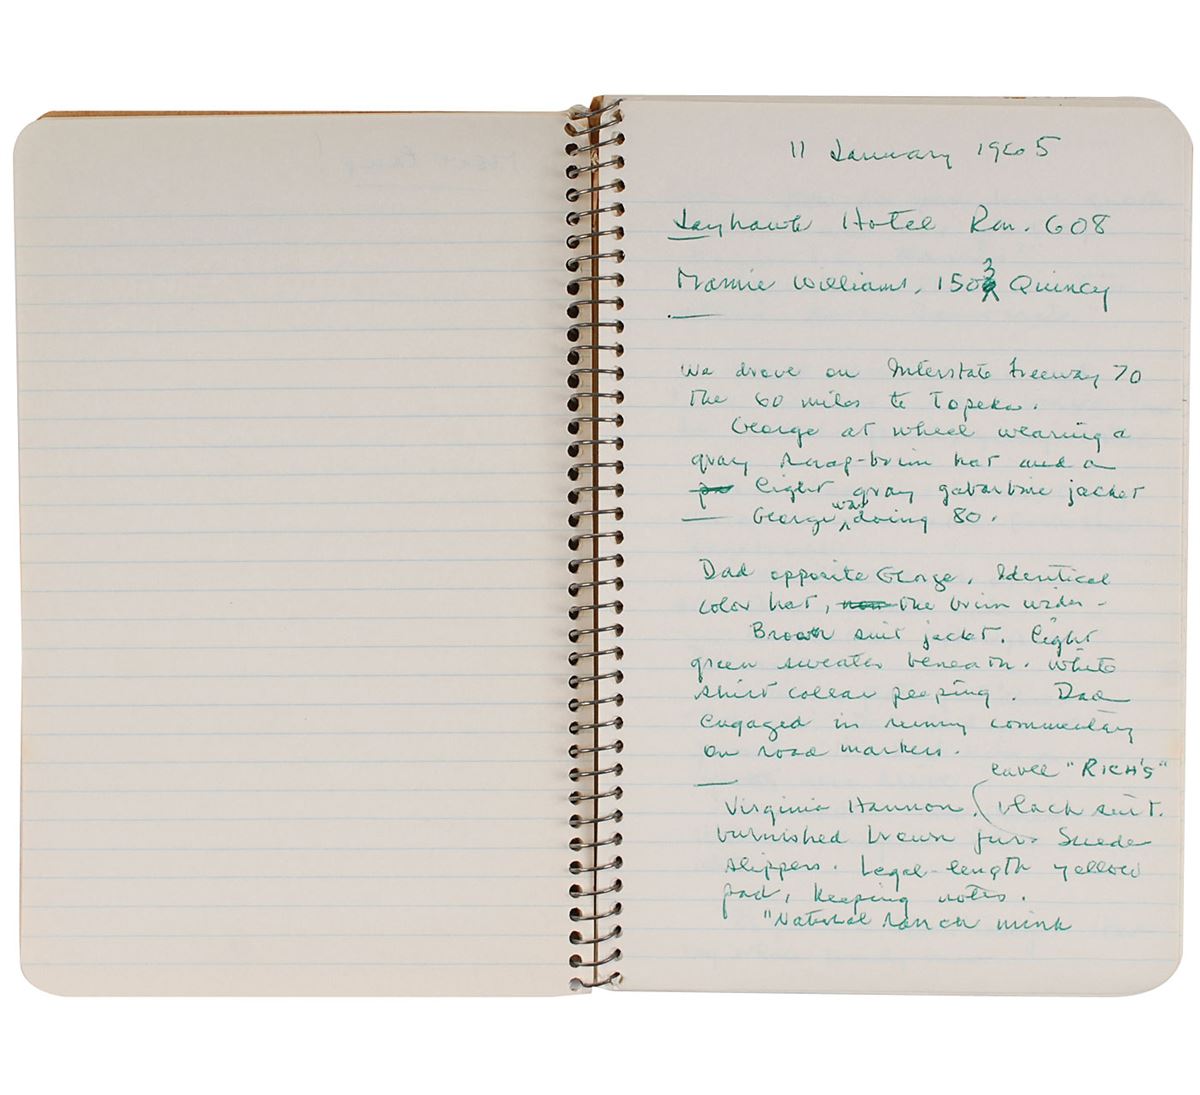 11 January 1965
Jayhawk Hotel Rm. 608
Mamie Williams, 1503 Quincy
We drove on Interstate Freeway 70
the 60 miles to Topeka.
George at wheel wearing a
gray snap-brim hat and a
light gray gabardine jacket
George was doing 80.
Dad opposite George. Identical
color hat, the brim wider -
Brown suit jacket. light
green sweater beneath. White
shirt collar peeping. Dad
engaged in running commentary
on road markers.
label "RICH'S"
Virginia Hannon. (black suit.
burnished brown furs Suede
slippers. Legal-length yellow
pad, keeping notes.
"Natural ranch mink